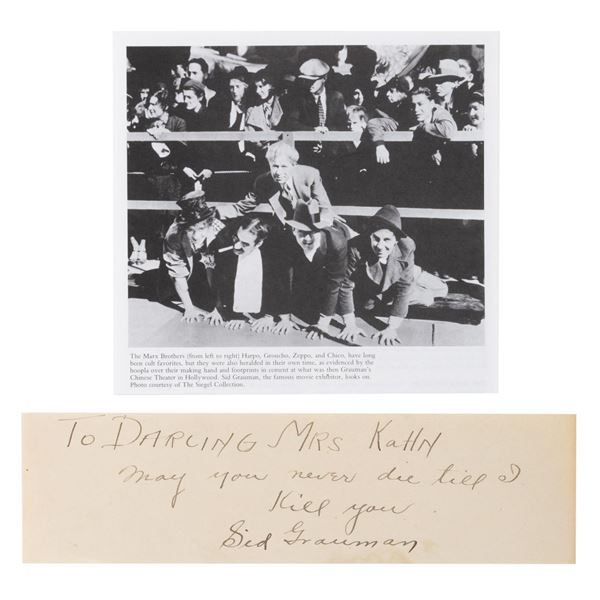 The Marx Brothers (from left to right) Harpo, Groucho, Zeppo, and Chico, have long
been cult favorites, but they were also heralded in their own time, as evidenced by the
hoopla over their making hand and footprints in cement at what was then Grauman's
Chinese Theater in Hollywood. Sid Grauman, the famous movie exhibitor, looks on.
Photo courtesy of The Siegel Collection.
To Darling Mrs Kahn
May you never die till I
Kill you.
Sid Grauman